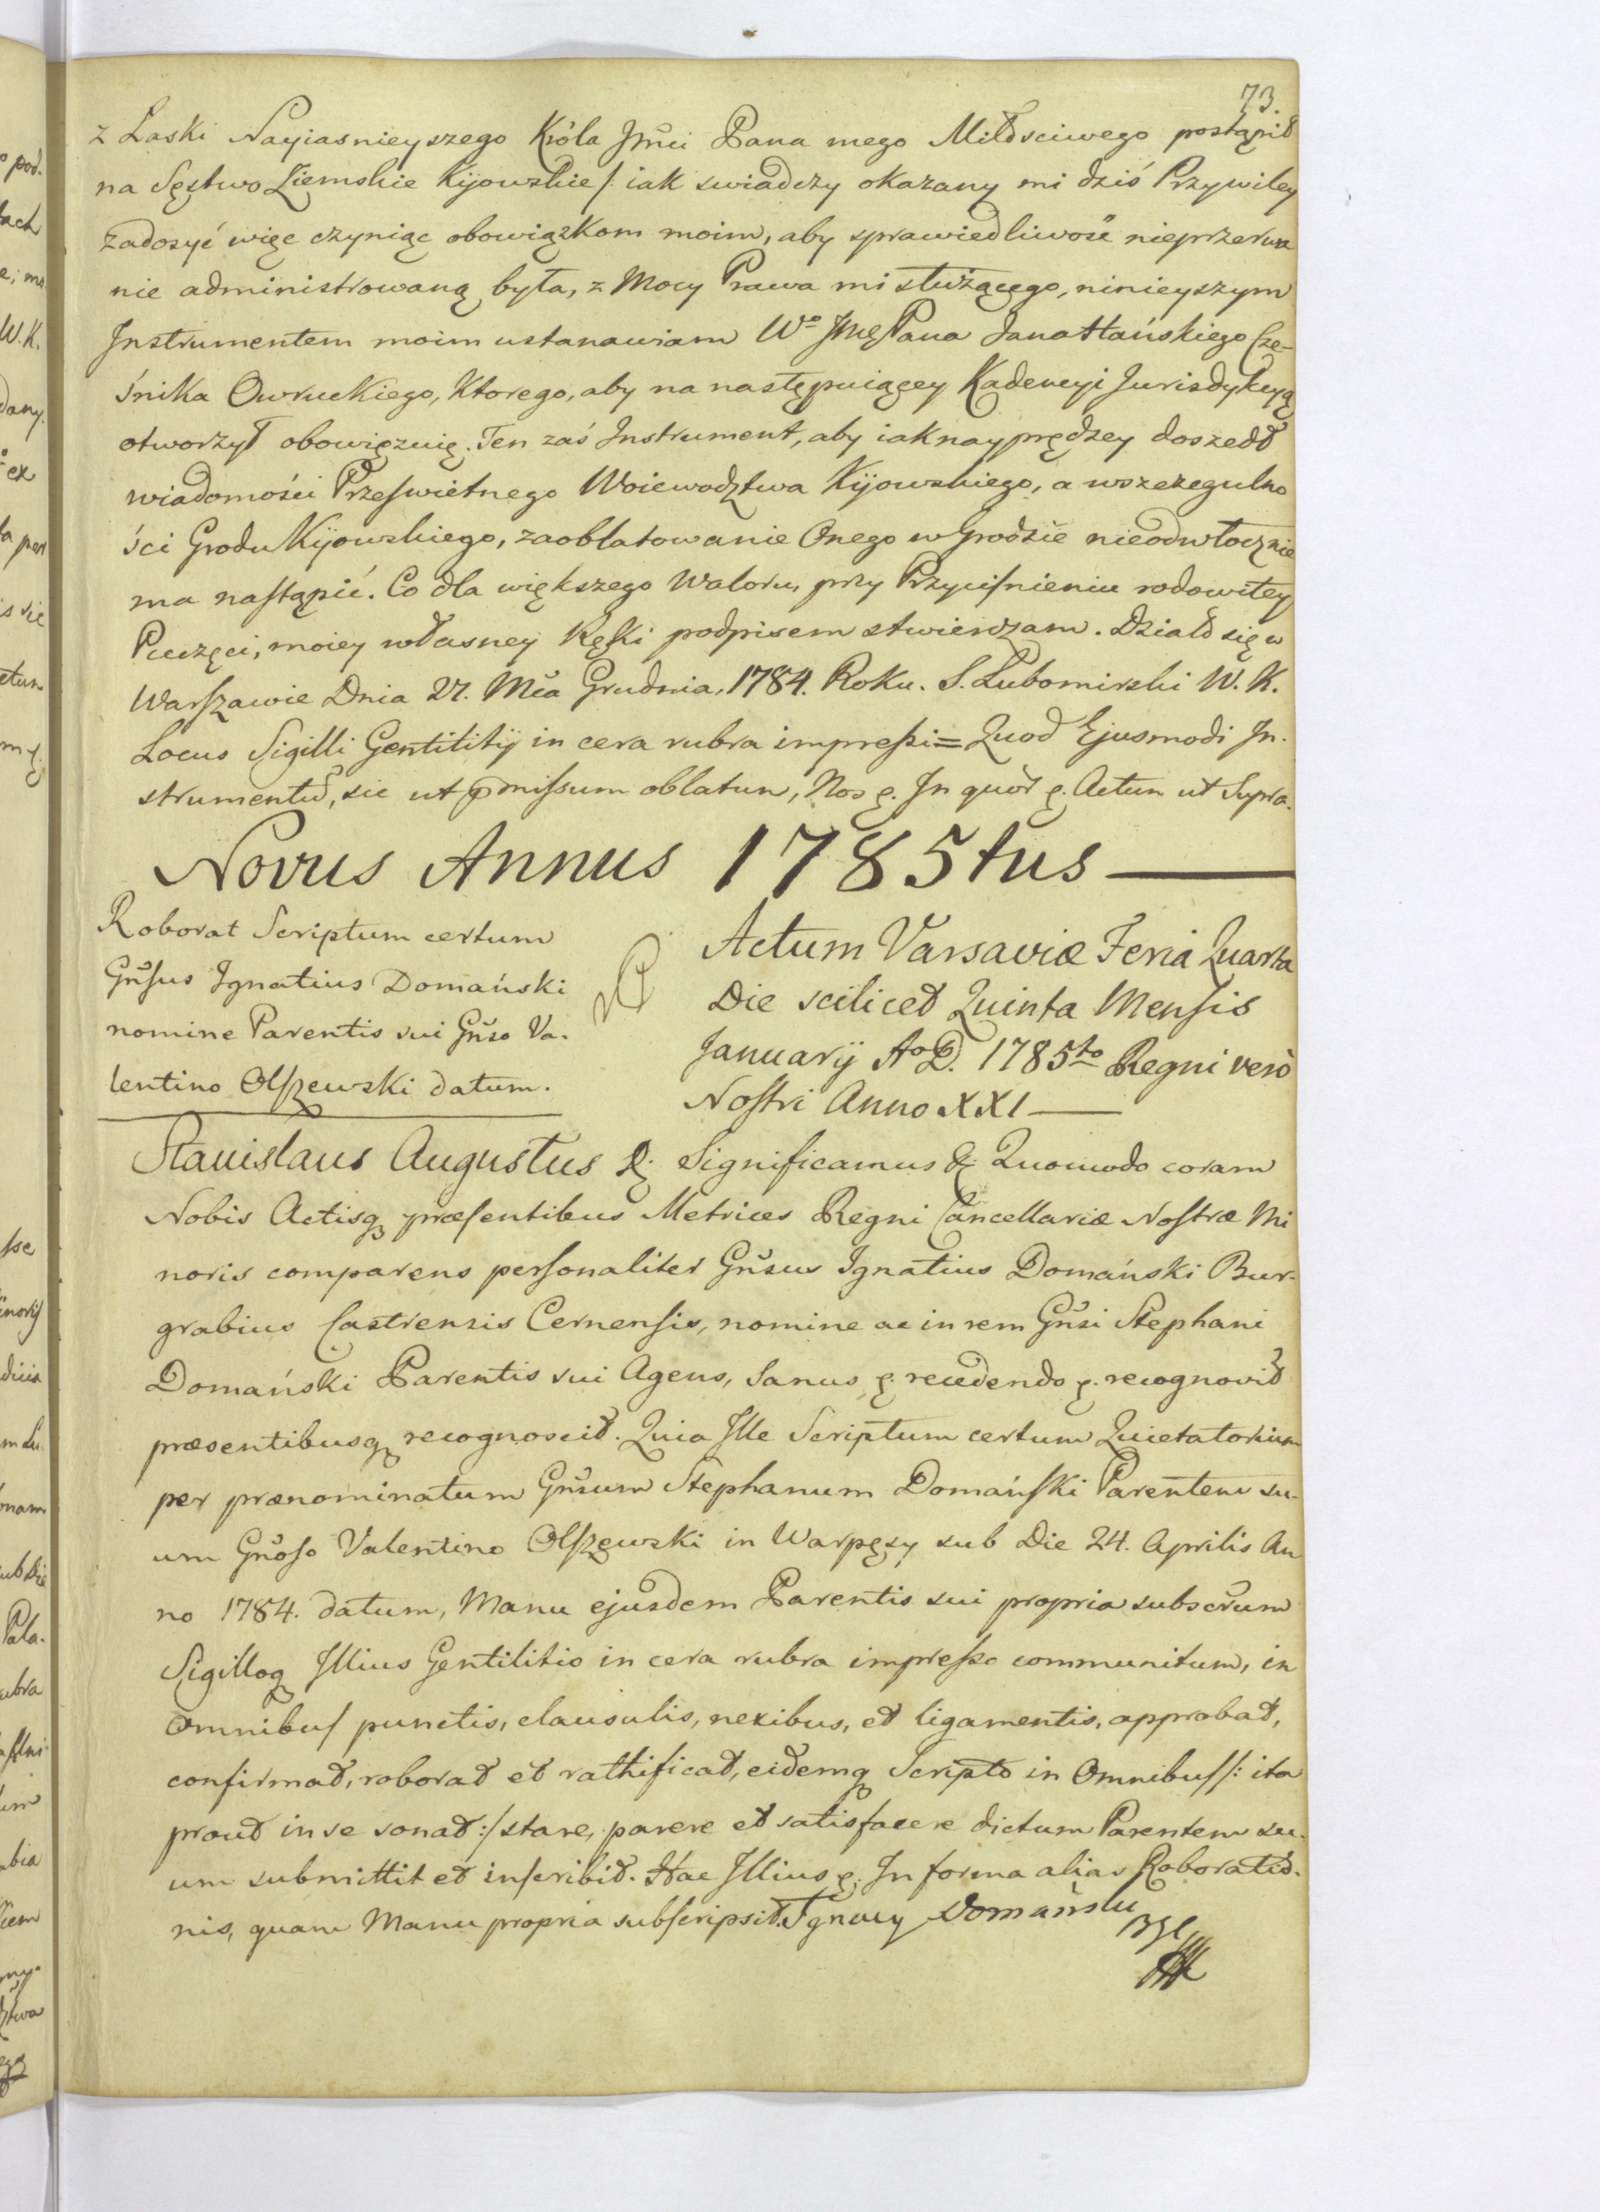 73.
z Łaski Nayiasnieyszego Króla Jmci Pana mego Miłościwego postąpił
na Sęstwo Ziemskie Kijowskie/: iak swiadczy okazany mi dziś Przywiley
Zadosyć więc czyniąc obowiązkom moim, aby sprawiedliwość nieprzerwa
nie administrowaną była, z Mocy Prawa mi służącego, ninieyszym
Instrumentem moim ustanawiam Wo Jmę Pana Jana Hańskiego Cze-
śnika Owruckiego, Ktorego, aby na następuiącey Kadencyi Jurisdykcyą
otworzył obowięzuię. Ten zaś Instrument, aby iaknayprędzey doszedł
wiadomości Prześwietnego Woiewodztwa Kijowskiego, a wszczegulno
ści Grodu Kijowskiego, zaoblatowanie Onego w Grodzie nieodwłocznie
ma nastąpić. Co dla większego Waloru, przy Przyciśnieniu rodowitey
Pieczęci, moiey własney Ręki podpisem stwierdzam. Działo się w
Warszawie Dnia 27. Mca Grudnia, 1784. Roku. S. Lubomirski W. K.
Locus Sigilli Gentilitij in cera rubra impressi= Quod Ejusmodi In-
strumentũ, sic ut pmissum oblatum, Nos &. In quor̃ &. Actum ut Supra.
Novus Annus 1785tus
Roborat Scriptum certum
Gnsus Ignatius Domański
nomine Parentis sui Gnso Va-
lentino Olszewski datum.
Actum Varsaviæ Feria Quarta
Die scilicet Quinta Mensis
Januarij Ao D. 1785to Regni verò
Nostri Anno XXI
Stanislaus Augustus &. Significamus &. Quomodo coram
Nobis Actisq præsentibus Metrices Regni Cancellariæ Nostræ Mi
noris comparens personaliter Gnsus Ignatius Domański Bur-
grabius Castrensis Cernensis, nomine ac in rem Gnsi Stephani
Domański Parentis sui Agens, Sanus &. recedendo &. recognovit
præsentibusq recognoscit. Quia Ille Scriptum certum Quietatorium
per prænominatum Gnsum Stephanum Domański Parentem su-
um Gnoso Valentino Olszewski in Warpęsy sub Die 24. Aprilis An
no 1784. datum, Manu ejusdem Parentis sui propria subscrum
Sigilloq Illius Gentilitio in cera rubra impresso communitum, in
Omnibus punctis, clausulis, nexibus, et ligamentis, approbat,
confirmat, roborat et rathificat, eidemq Scripto in Omnibus/: ita
prout in se sonat:/ stare, parere et satisfacere dictum Parentem su-
um submittit et inscribit. Hac Illius &. In forma alias Roboratio-
nis, quam Manu propria subscripsit. Ignacy Domański
BGC